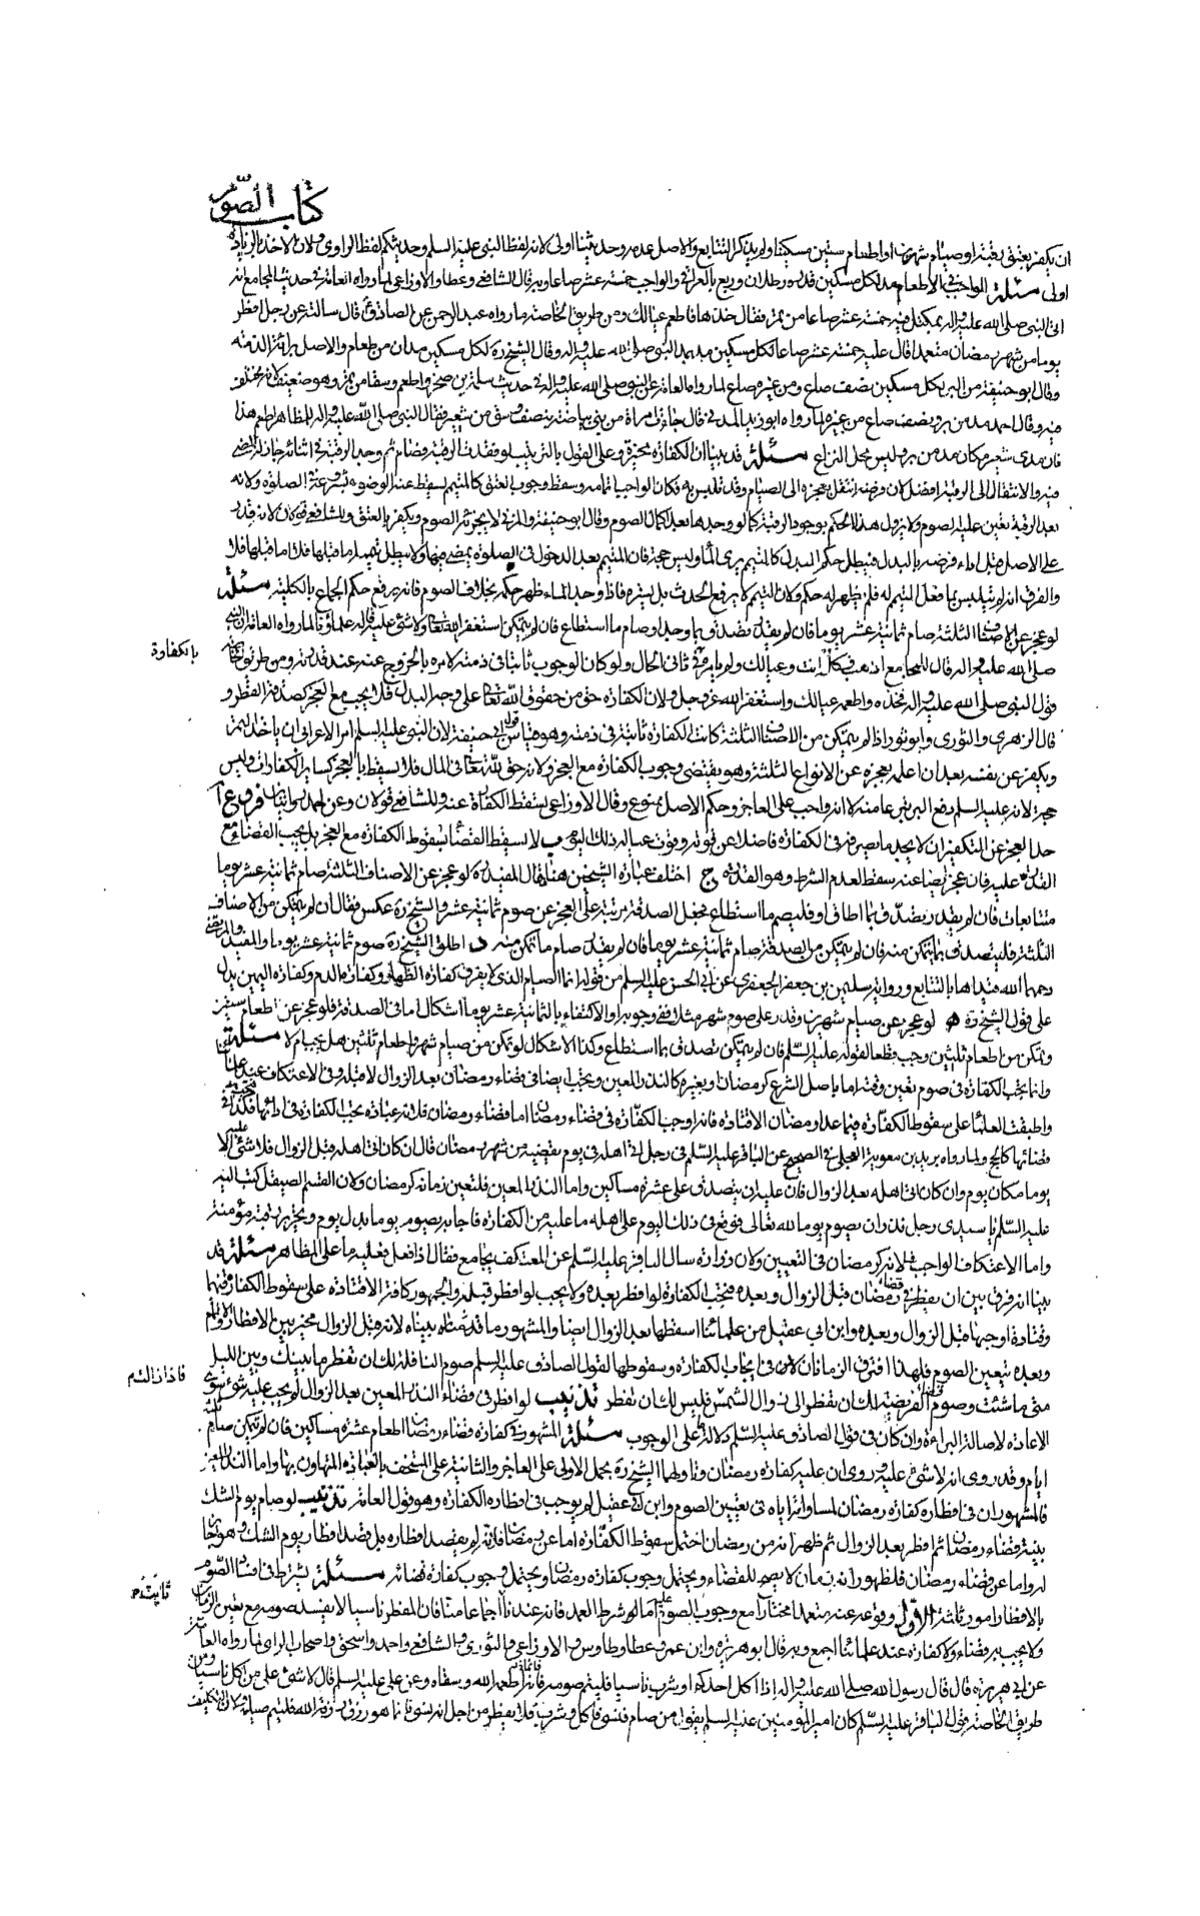 كتاب الصوم
ان يكفر بعتق رقبة او صيام شهرين او اطعام ستين مسكينا ولم يذكر التتابع والاصل عدمه وحديثنا اولى لانه لفظ النبي عليه السلم وحديثكم لفظ الراوي ولان الاخذ بالزيادة
اولى مسئلة الواجب في الاطعام مد لكل مسكين قدره رطلان وربع بالعراقي والواجب خمسة عشر صاعا وبه قال الشافعي وعطا والاوزاعي لما رواه العامة في حديث المجامع انه
اتى النبي صلى الله عليه واله بمكتل فيه خمسة عشر صاعا من تمر فقال خذها فاطعم عيالك ومن طريق الخاصة ما رواه عبد الرحمن عن الصادق ع قال سالته عن رجل افطر
يوما من شهر رمضان متعمدا قال عليه خمسة عشر صاعا لكل مسكين مد بمد النبي صلى الله عليه واله وقال الشيخ ره لكل مسكين مدان من طعام والاصل براءة الذمة
وقال ابو حنيفة من البر لكل مسكين نصف صاع ومن غيره صاع لما رواه العامة عن النبي صلى الله عليه واله في حديث سلمة بن صخر واطعم وسقا من تمر وهو ضعيف لانه مختلف
فيه وقال احمد مد من بر ونصف صاع من غيره لما رواه ابو زيد المدني قال جاءت امراة من بني بياضة بنصف وسق من شعير فقال النبي صلى الله عليه واله للمظاهر اطعم هذا
فان مدي شعير مكان مد من بر وليس محل النزاع مسئلة قد بينا ان الكفارة مخيرة وعلى القول بالترتيب لو فقد الرقبة فصام ثم وجد الرقبة في اثنائه جاز له المضي
فيه والانتقال الى الرقبة افضل لان فرضه انتقل بعجزه الى الصيام وقد تلبس به فكان الواجب اتمامه وسقط وجوب العتق كالمتيمم يسقط عنه الوضوء بشروعه في الصلوة ولانه
بعد الرقبة تعين عليه الصوم ولا يزول هذا الحكم بوجود الرقبة كما لو وجدها بعد اكمال الصوم وقال ابو حنيفة والمزني لا يجزئه الصوم ويكفر بالعتق وللشافعي قولان لانه قدر
على الاصل قبل اداء فرضه بالبدل فيبطل حكم البدل كالمتيمم يرى الماء وليس حجة فان المتيمم بعد الدخول في الصلوة يمضي فيها ولا يبطل تيممه اما قبلها فلا
والفرق انه لم يتلبس بما فعل التيمم له فلم يظهر له حكم ولان التيمم لا يرفع الحدث بل يستره فاذا وجد الماء ظهر حكمه بخلاف الصوم فانه يرفع حكم الجماع بالكلية مسئلة
لو عجز عن الاصناف الثلثة صام ثمانية عشر يوما فان لم يقدر تصدق بما وجد او صام ما استطاع فان لم يتمكن استغفر الله تعالى ولا شئ عليه قاله علماؤنا لما رواه العامة ان النبي
صلى الله عليه واله قال للمجامع اذهب فكله انت وعيالك ولم يامره في ثاني الحال ولو كان الوجوب ثابتا في ذمته لامره بالخروج عنه عند قدرته ومن طريق الخاصة
بالكفارة
قول النبي صلى الله عليه واله فخذه واطعمه عيالك واستغفر الله عز وجل ولان الكفارة حق من حقوق الله تعالى على وجه البدل فلا يجب مع العجز كصدقة الفطر و
قال الزهري والثوري وابو ثور اذا لم يتمكن من الاصناف الثلثة كانت الكفارة ثابتة في ذمته وهو قياس قول ابي حنيفة لان النبي عليه السلم امر الاعرابي ان ياخذ التمر
ويكفر عن نفسه بعد ان اعلمه بعجزه عن الانواع الثلثة وهو يقتضي وجوب الكفارة مع العجز ولانه حق لله تعالى في المال فلا يسقط بالعجز كسائر الكفارات وليس
حجة لانه عليه السلم دفع التمر تبرعا منه لا انه واجب على العاجز وحكم الاصل ممنوع وقال الاوزاعي يسقط الكفارة عنه وللشافعي قولان وعن احمد روايتان فروع آ
حد العجز عن التكفير ان لا يجد ما يصرفه في الكفارة فاضلا عن قوته وقوت عياله ذلك اليوم ب لا يسقط القضاء بسقوط الكفارة مع العجز بل يجب القضاء مع
القدرة عليه فان عجز ايضا عنه سقط لعدم الشرط وهو القدرة ج اختلف عبارة الشيخين هنا قال المفيد ره لو عجز عن الاصناف الثلثة صام ثمانية عشر يوما
متتابعات فان لم يقدر تصدق بما اطاق او فليصم ما استطاع فجعل الصدقة مرتبة على العجز عن صوم ثمانية عشر والشيخ ره عكس فقال ان لم يتمكن من الاصناف
الثلثة فليتصدق بما يتمكن منه فان لم يتمكن من الصدقة صام ثمانية عشر يوما فان لم يقدر صام ما تمكن منه د اطلق الشيخ ره صوم ثمانية عشر يوما والمفيد والمرتضى
رحمهما الله قيداها بالتتابع ورواية سليمن بن جعفر الجعفري عن ابي الحسن عليه السلم من قوله انما الصيام الذي لا يفرق كفارة الظهار وكفارة الدم وكفارة اليمين يدل
على قول الشيخ ره ه لو عجز عن صيام شهرين وقدر على صوم شهر مثلا ففي وجوبه او الاكتفاء بالثمانية عشر يوما اشكال اما في الصدقة فلو عجز عن اطعام ستين
وتمكن من اطعام ثلثين وجب قطعا لقوله عليه السلم فان لم يتمكن تصدق بما استطاع وكذا الاشكال لو تمكن من صيام شهر واطعام ثلثين هل يجبان ام لا مسئلة
وانما يجب الكفارة في صوم تعين وقته اما باصل الشرع كرمضان او بغيره كالنذر المعين ويجب ايضا في قضاء رمضان بعد الزوال لا قبله وفي الاعتكاف عند علمائنا
واطبقت العلماء على سقوط الكفارة فيما عدا رمضان الا قتادة فانه اوجب الكفارة في قضاء رمضان اما قضاء رمضان فلانه عبادة يجب الكفارة في ادائها فكذا في
قضائها كالحج ولما رواه بريد بن معوية العجلي في الصحيح عن الباقر عليه السلم في رجل اتى اهله في يوم يقضيه من شهر رمضان قال ان كان اتى اهله قبل الزوال فلا شئ عليه الا
يوما مكان يوم وان كان اتى اهله بعد الزوال فان عليه ان يتصدق على عشرة مساكين واما النذر المعين فلتعين زمانه كرمضان ولان القسم الصيقل كتب اليه
عليه السلم يا سيدي رجل نذر ان يصوم يوما لله تعالى فوقع في ذلك اليوم على اهله ما عليه من الكفارة فاجابه يصوم يوما بدل يوم وتحرير رقبة مؤمنة
واما الاعتكاف الواجب فلانه كرمضان في التعيين ولان زرارة سال الباقر عليه السلم عن المعتكف يجامع فقال اذا فعل فعليه ما على المظاهر مسئلة قد
بينا انه فرق بين ان يفطر في قضاء رمضان قبل الزوال وبعده فتجب الكفارة لو افطر بعده ولا يجب لو افطر قبله والجمهور كافة الا قتادة على سقوط الكفارة فيهما
وقتادة اوجبها قبل الزوال وبعده وابن ابي عقيل من علمائنا اسقطها بعد الزوال ايضا والمشهور ما قدمناه بيناه لانه قبل الزوال مخير بين الافطار والاتمام
وبعده يتعين الصوم فلهذا افترق الزمانان في ايجاب الكفارة وسقوطها لقول الصادق عليه السلم صوم النافلة لك ان تفطر ما بينك وبين الليل
متى ما شئت وصوم قضاء الفريضة لك ان تفطر الى زوال الشمس فليس لك ان تفطر تذنيب لو افطر في قضاء النذر المعين بعد الزوال لم يجب عليه شئ سوى
فاذا زالت الشمس
الاعادة لاصالة البراءة وان كان في قول الصادق عليه السلم دلالة على الوجوب مسئلة المشهور في كفارة قضاء رمضان اطعام عشرة مساكين فان لم يتمكن صام ثلثة
ايام وقد روى انه لا شئ عليه وروى ان عليه كفارة رمضان وتاولهما الشيخ ره بحمل الاولى على العاجز والثانية على المستخف بالعبادة المتهاون بها واما النذر المعين
فالمشهور ان في افطاره كفارة رمضان لمساواته اياه في تعيين الصوم وابن ابي عقيل لم يوجب في افطاره الكفارة وهو قول العامة تذنيب لو صام يوم الشك
بنية قضاء رمضان ثم افطر بعد الزوال ثم ظهر انه من رمضان احتمل سقوط الكفارة اما عن رمضان فلانه لم يقصد افطاره بل قصد افطار يوم الشك وهو جائز
له واما عن قضاء رمضان فلظهور انه زمان لا يصح للقضاء ويحتمل وجوب كفارة رمضان ويحتمل وجوب كفارة قضائه مسئلة يشترط في افساد الصوم
بالافطار امور ثلثة الاول وقوعه عنه متعمدا مختارا مع وجوب الصوم عليه اما لو شرط العمد فانه عندنا اجماعا منا فان المفطر ناسيا لا يفسد صومه مع تعين الزمان
ولا يجب به قضاء ولا كفارة عند علمائنا اجمع وبه قال ابو هريرة وابن عمر وعطا وطاوس والاوزاعي والثوري والشافعي واحمد واسحق واصحاب الراي لما رواه العامة
عن ابي هريرة قال قال رسول الله صلى الله عليه واله اذا اكل احدكم او شرب ناسيا فليتم صومه فانما اطعمه الله وسقاه وعن علي عليه السلم قال لا شئ على من اكل ناسيا ومن
طريق الخاصة قول الباقر عليه السلم كان امير المومنين عليه السلم يقول من صام فنسى فاكل وشرب فلا يفطر من اجل انه نسى فانما هو رزق رزقه الله فليتم صيامه ولان التكليف